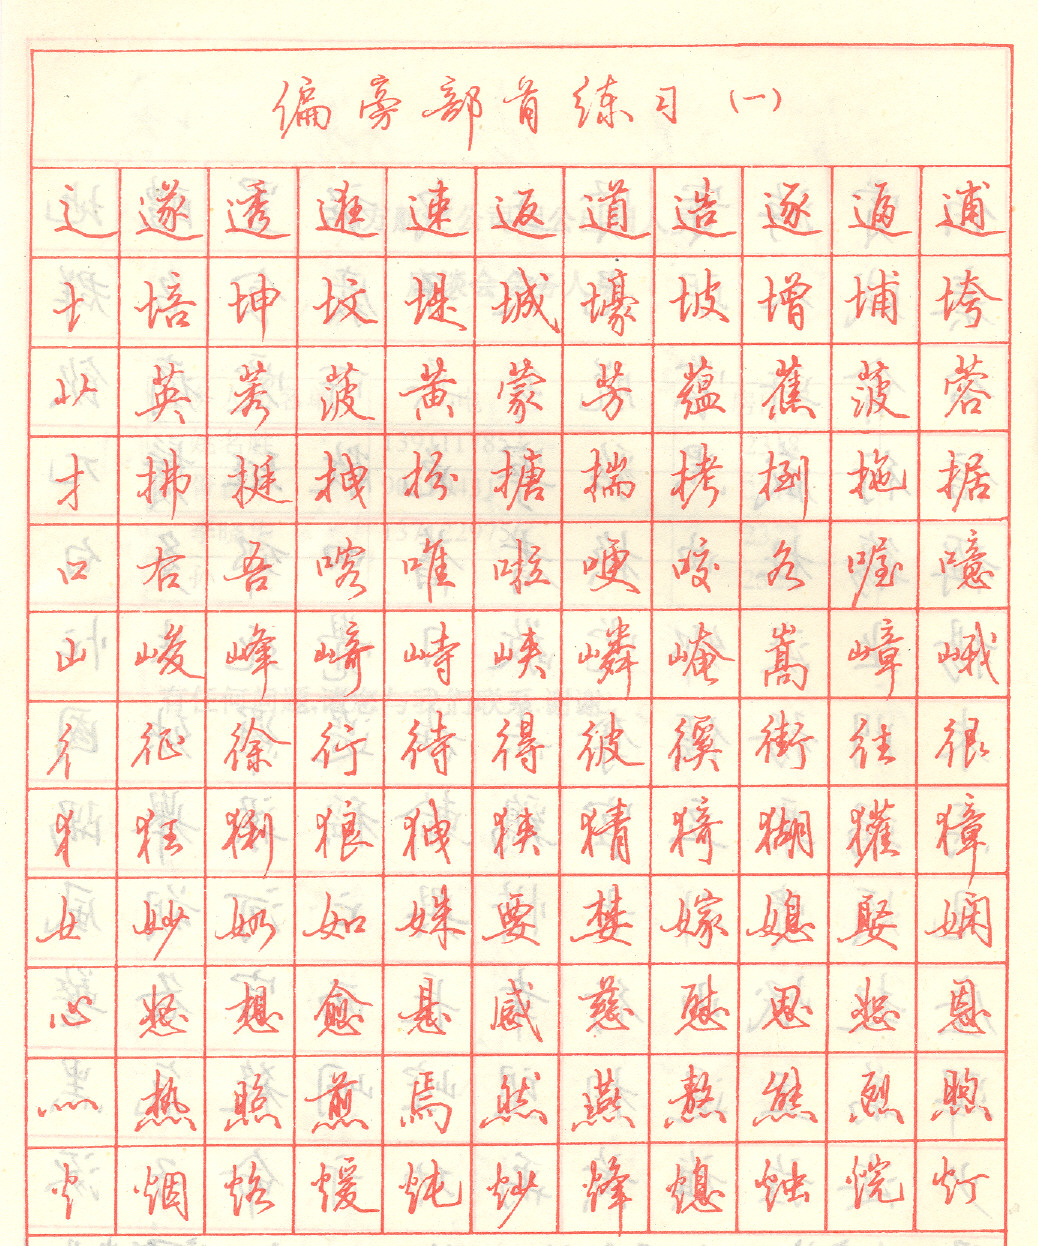 偏旁部首练习（一）
辶 遂 透 逛 速 返 道 造 逐 遍 逋
土 培 坤 坟 堤 城 壕 坡 增 埔 垮
艹 英 若 菠 黄 蒙 芳 蕴 蕉 菠 蓉
扌 拂 挺 拽 扮 搪 揣 拷 捌 拖 据
口 右 吾 喀 唯 啦 哽 咬 名 喔 噫
山 峻 峰 崎 峙 峡 嶙 崦 嵩 嶂 峨
彳 征 徐 行 待 得 彼 徯 街 往 很
犭 狂 猁 狼 狭 猜 猗 猢 獾 獐
女 妙 如 姝 要 婪 嫁 媳 娶 娴
心 怒 想 愈 悬 感 慈 慰 思 恕 恩
灬 热 照 煎 焉 然 燕 熬 熊 烈 煦
火 烟 烙 煖 炖 炒 烽 熄 烛 烷 灯